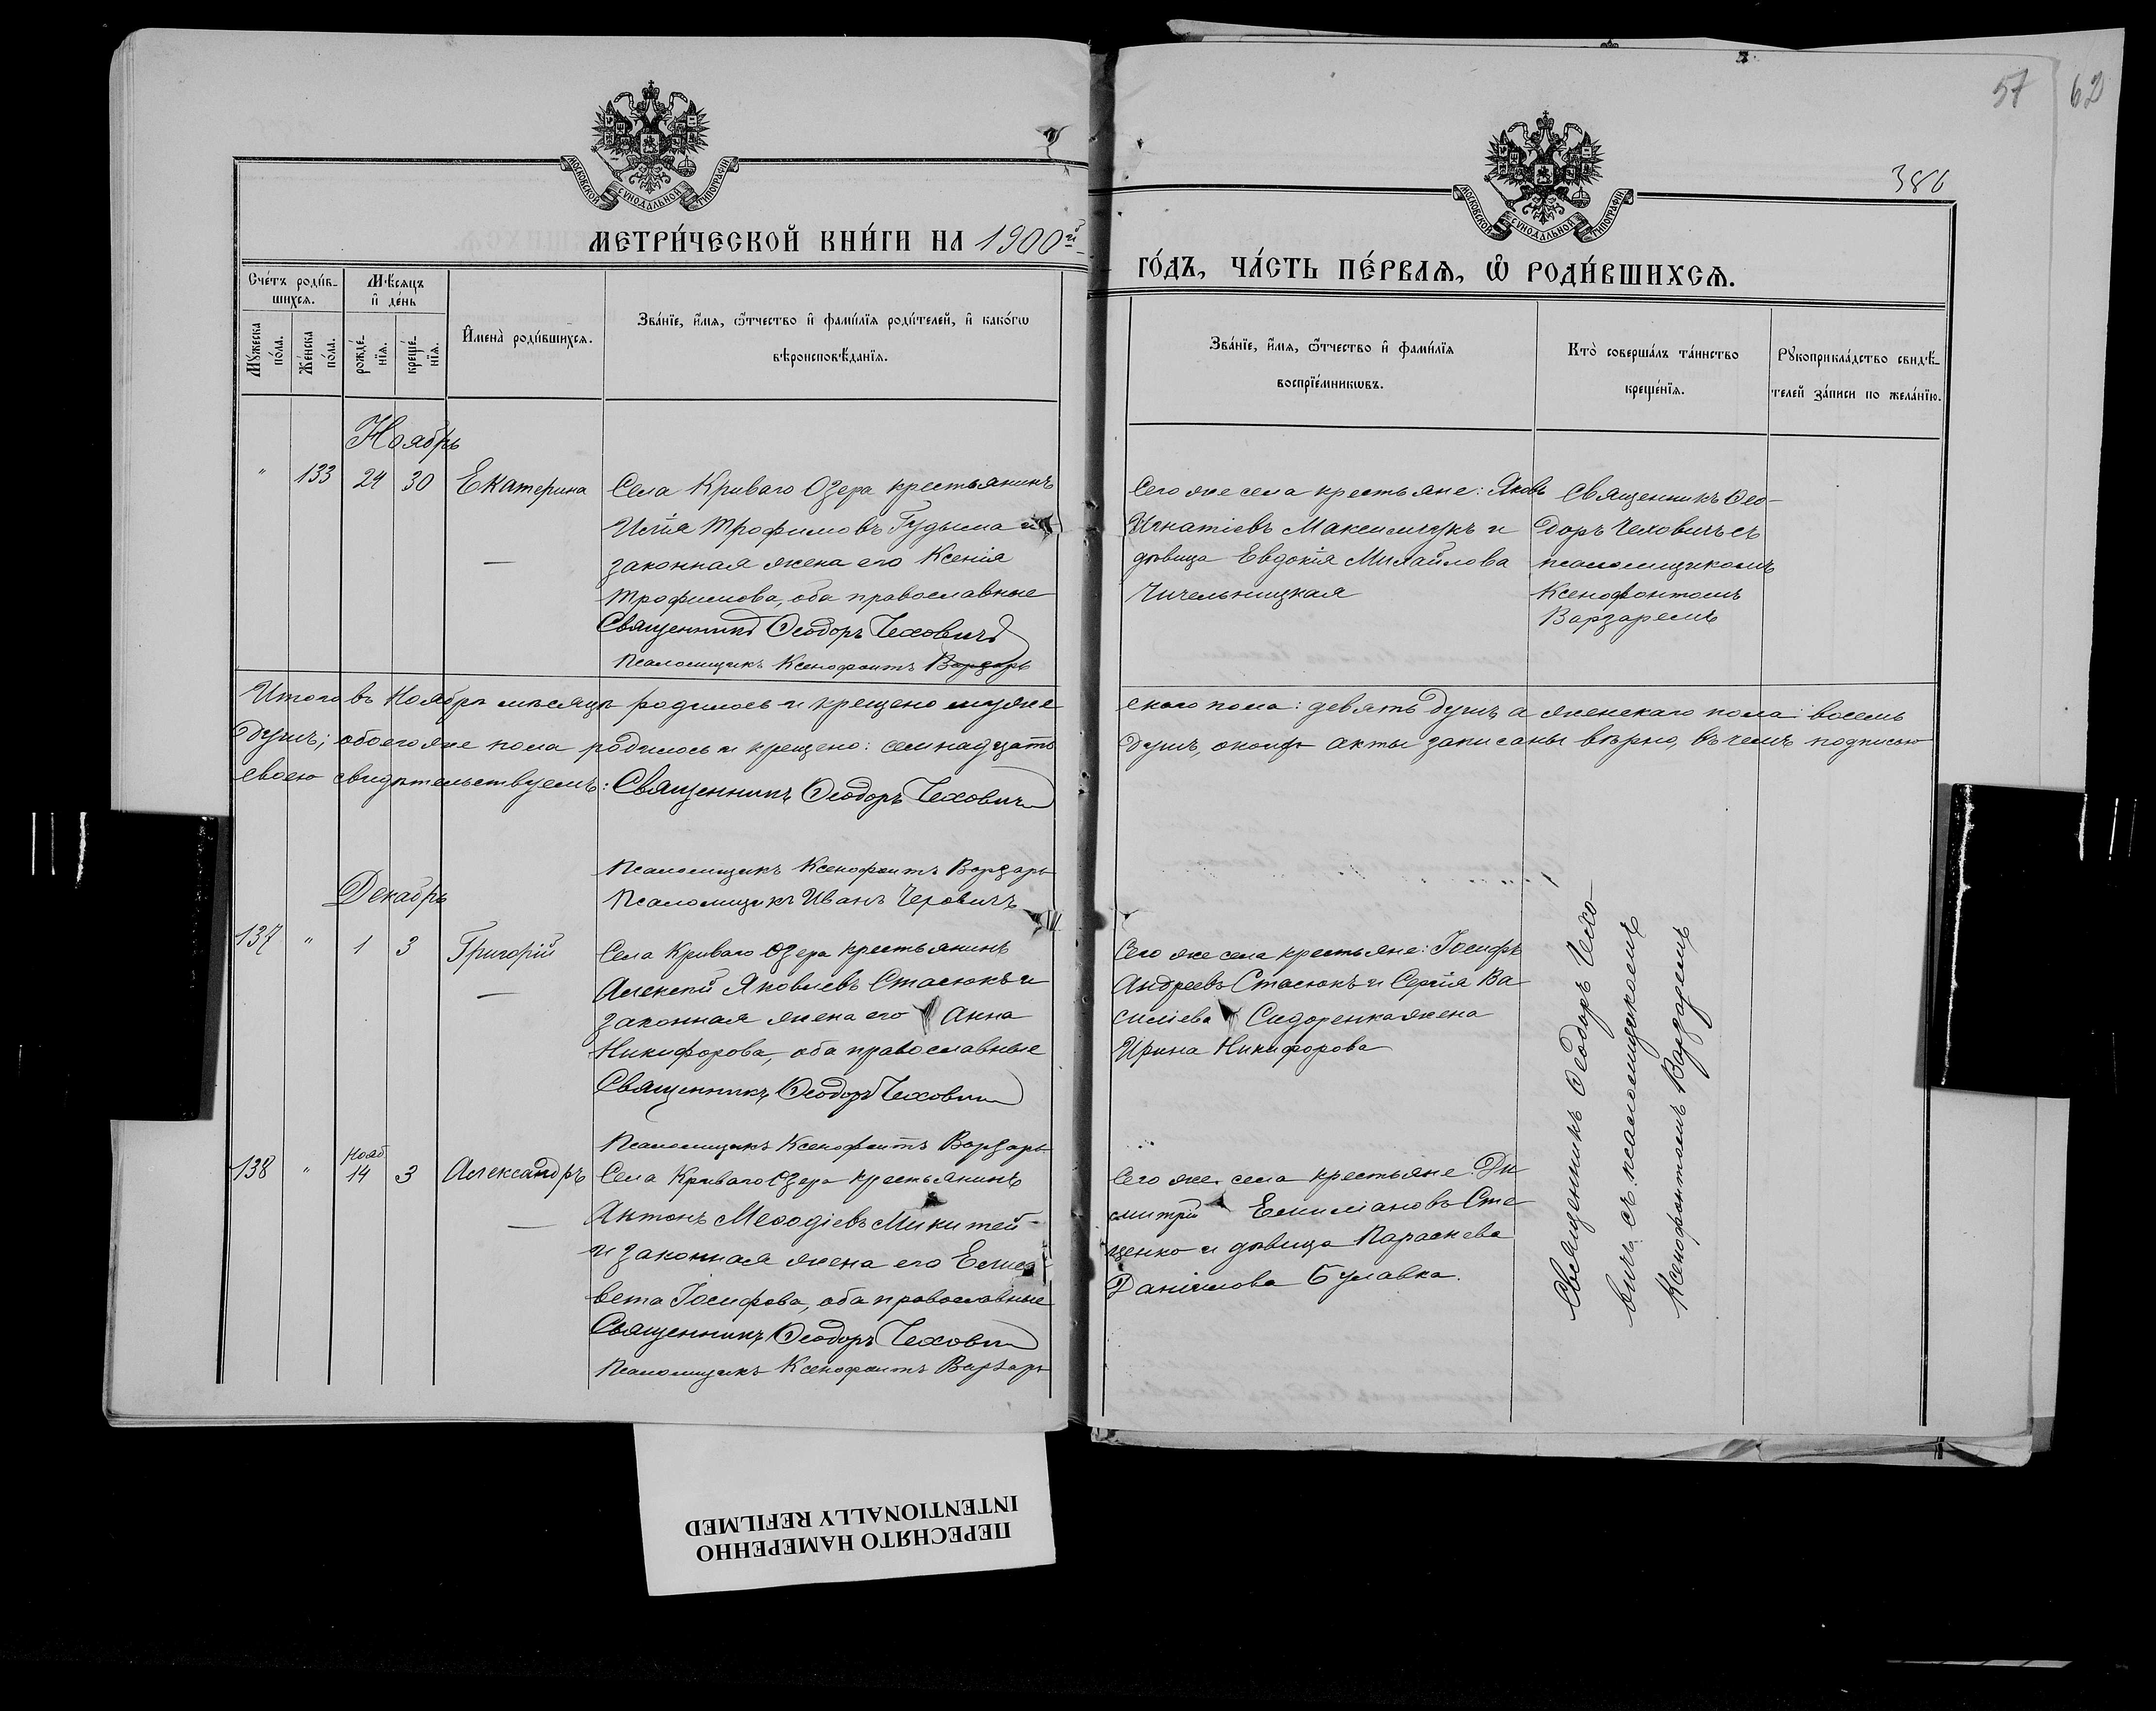 57 62
386
МОСКОВСКОЙ СѴНОДАЛЬНОЙ ТИПОГРАФІИ
МОСКОВСКОЙ СѴНОДАЛЬНОЙ ТИПОГРАФІИ
МЕТРИ́ЧЕСКОЙ КНИ́ГИ НА 1900й
ГО́ДЪ, ЧА́СТЬ ПЕ́РВАѦ, Ѡ РОДИ́ВШИХСѦ.
Сче́тъ роди́в-
шихсѧ.
Мꙋ́жеска по́ла.
Же́нска по́ла.
Мѣ́сѧцъ
и҆ де́нь
рожде́-
нїѧ.
креще́-
нїѧ.
И҆мена̀ роди́вшихсѧ.
Зва́нїе, и҆́мѧ, ѻ҆́тчество и҆ фами́лїѧ роди́телей, и҆ како́гѡ
вѣроисповѣ́данїѧ.
Зва́нїе, и҆́мѧ, ѻ҆́тчество и҆ фами́лїѧ
воспрїе́мникѡвъ.
Кто̀ соверша́лъ та́инство
креще́нїѧ.
Рꙋкоприкла́дство свидѣ́-
телей за́писи по жела́нїю.
Ноябрь
" 133 24 30 Екатерина
Села Криваго Озера крестьянинъ
Илія Трофимовъ Гудыма и
законная жена его Ксенія
Трофимова, оба православные
Священникъ Ѳеодоръ Чеховичъ
Псаломщикъ Ксенофонтъ Варзарь
Сего же села крестьяне: Яковъ
Игнатіевъ Максимчукъ и
дѣвица Евдокія Михайлова
Чичельницкая
Священникъ Ѳео-
доръ Чеховичъ съ
псаломщикомъ
Ксенофонтомъ
Варзаремъ
Итого въ Ноябрѣ мѣсяцѣ родилось и крещено муже
скаго пола: девять душъ а женскаго пола: восемь
душъ; обоего же пола родилось и крещено: семнадцать
душъ, акты записаны вѣрно, въ чемъ подписью
своею свидѣтельствуемъ: Священникъ Ѳеодоръ Чеховичъ
Псаломщикъ Ксенофонтъ Варзарь
Псаломщикъ Иванъ
Декабрь
137 " 1 3 Григорій
Села Криваго Озера крестьянинъ
Алексѣй Яковлевъ Стасюкъ и
законная жена его Анна
Никифорова, оба православные
Священникъ Ѳеодоръ Чеховичъ
Псаломщикъ Ксенофонтъ Варзарь
Сего же села крестьяне: Іосифъ
Андреевъ Стасюкъ и Сергія Ва
силіева Сидоренка жена
Ирина Никифорова
138 " Нояб. 14 3 Александръ
Села Криваго Озера крестьянинъ
Антонъ Меѳодіевъ Микитей
и законная жена его Елиса
вета Іосифова, оба православные
Священникъ Ѳеодоръ Чеховичъ
Псаломщикъ Ксенофонтъ Варзарь
Сего же села крестьяне: Ди
митрій Емиліановъ Сте
ценко и дѣвица Параскева
Даніилова Булавка.
Священникъ Ѳеодоръ Чехо-
вичъ съ псаломщикомъ
Ксенофонтомъ Варзаремъ
ПЕРЕСНЯТО НАМЕРЕННО
INTENTIONALLY REFILMED